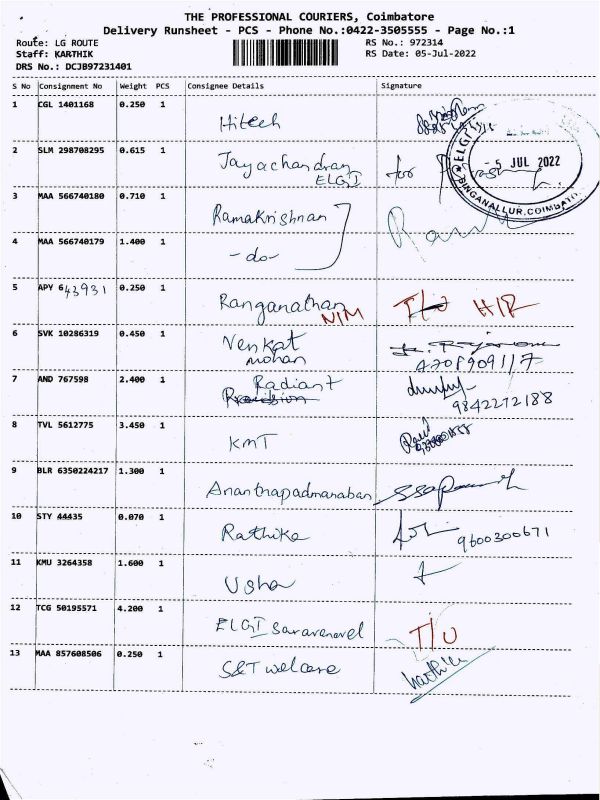 THE PROFESSIONAL COURIERS, Coimbatore
Delivery Runsheet - PCS - Phone No.:0422-3505555 - Page No.:1
Route: LG ROUTE
RS No.: 972314
Staff: KARTHIK
RS Date: 05-Jul-2022
DRS No.: DCJB97231401
S No Consignment No Weight PCS Consignee Details Signature
1 CGL 1401168 0.250 1 Hitech
2 SLM 298708295 0.615 1 Jayachandran for
ELGI
ELGI
5 JUL 2022
SINGANALLUR, COIMBATO
3 MAA 566740180 0.710 1 Ramakrishnan
4 MAA 566740179 1.400 1 -do-
5 APY 643931 0.250 1 Ranganathan T/O
NIM
6 SVK 10286319 0.450 1 Venkat
mohan
7 AND 767598 2.400 1 Radiant
Precision
9842272188
8 TVL 5612775 3.450 1 KMT
9 BLR 6350224217 1.300 1 Ananthapadmanaban
10 STY 44435 0.070 1 Rathika
9600300671
11 KMU 3264358 1.600 1 Usha
12 TCG 50195571 4.200 1 ELGI Saravanavel T/O
13 MAA 857608506 0.250 1 S&T welcare